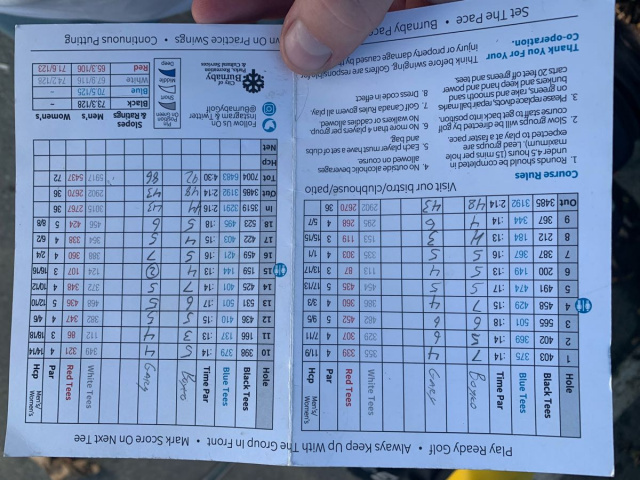 Play Ready Golf • Always Keep Up With The Group In Front • Mark Score On Next Tee
Hole Black Tees Blue Tees Time Par Gary White Tees Red Tees Par Men's/ Women's Hcp
1 403 375 :14 7 4 355 339 4 11/9
2 402 369 :14 344 307 4 7/11
3 565 501 :18 6 6 482 452 5 9/5
4 458 429 :15 7 4 386 360 4 3/3
5 491 474 :17 5 5 454 435 5
6 200 149 :13 5 4 113 87 3 13/17
7 387 367 :16 5 5 335 303 4 1/1
8 212 184 :13 4 3 153 119 3 15/15
9 367 344 :14 4 6 295 268 4 5/7
Out 3485 3192 2:14 48 43 2902 2670 36
Visit our bistro/clubhouse/patio
Course Rules
1. Rounds should be completed in
under 4.5 hours (15 mins per hole
maximum). Lead groups are
expected to play at a faster pace.
2. Slow groups will be directed by golf
course staff to get back into position.
3. Please replace divots, repair ball marks
on greens, rake and smooth sand
bunkers and keep hand and power
carts 20 feet off greens and tees.
4. No outside alcoholic beverages
allowed on course.
5. Each player must have a set of clubs
and bag
6. No more than 4 players per group.
No walkers or caddies allowed
7. Golf Canada Rules govern all play.
8. Dress code in effect
Think before swinging. Golfers are responsible for
injury property damage caused by
Thank You For Your
Co-operation.
Set The Pace • Burnaby Pace
Hole Black Tees Blue Tees Time Par Gary White Tees Red Tees Par Men's/ Women's Hcp
10 398 379 :14 5 4 349 321 4 14/14
11 166 137 :13 3 4 112 86 3 18/18
12 436 410 :15 5 5 382 347 4 4/6
13 531 501 :17 6 5 468 436 5 12/10
14 425 401 :14 7 5 372 348 4 10/12
15 159 144 :13 4 2 124 107 3 16/16
16 459 421 :16 5 7 388 360 4 2/4
17 422 403 :15 4 5 364 338 4 6/2
18 523 495 :18 5 6 456 424 5 8/8
In 3519 3291 2:16 44 43 3015 2767 36
Out 3485 3192 2:14 48 43 2902 2670 36
Tot 7004 6483 4:30 92 86 5917 5437 72
Hcp
Net
Follow Us On
Instagram & Twitter
@BurnabyGolf
City of
Burnaby
Parks, Recreation
& Cultural Services
Pin
Position
On Green
Shallow
Middle
Deep
Slopes
Ratings Men's Women's
Black 73.3/128 -
Blue 70.5/125 -
White 67.9/116 74.2/128
Red 65.3/106 71.6/123
Own On Practice Swings • Continuous Putting